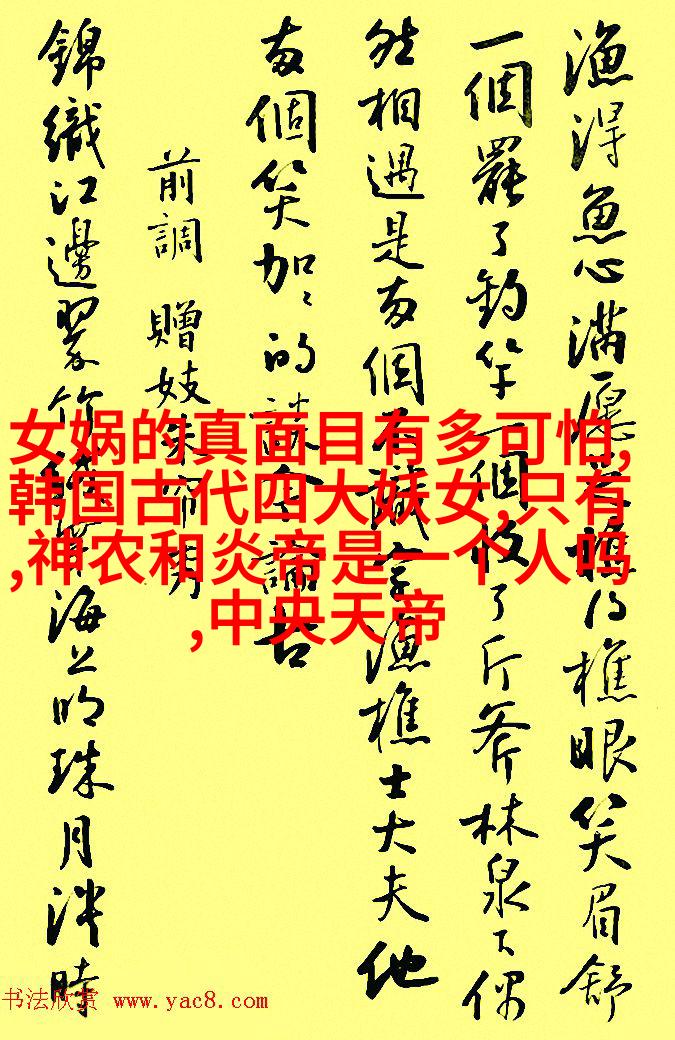 漁得魚心滿愿足樵得樵眼笑眉舒
一個罷了釣竿一個收了斤斧林泉下偶
然相遇是兩個不識字漁樵士大夫他
兩個笑加加的談今論古
前調 贈妓朱帘秀
錦織江邊翠竹絨穿海上明珠月淡時
女娲的真面目有多可怕,
韩国古代四大妖女,只有
,神农和炎帝是一个人吗
,中央天帝
书法欣赏 www.yac8.com